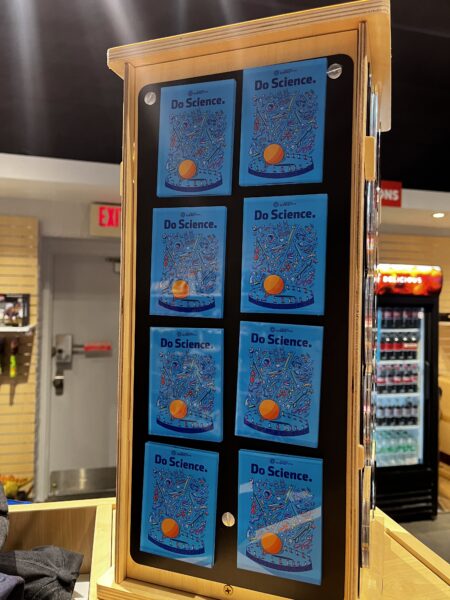 Do Science.
Do Science.
EXI
Do Science.
Do Science.
NS
DELICIOUS
Do Science.
Do Science.
Do Science.
Do Science.